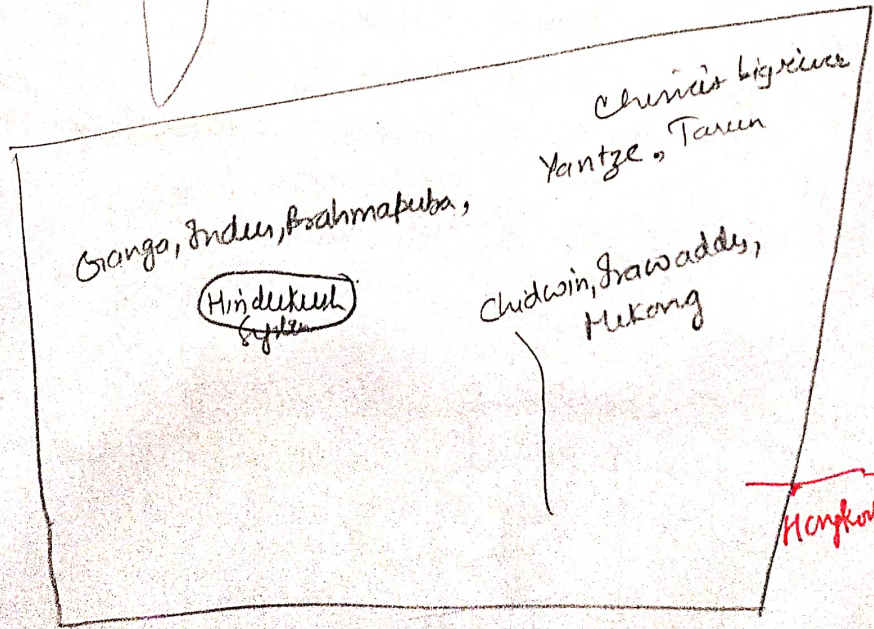 Chinies big river
Yantze, Tarim
Ganga, Indus, Brahmaputra,
Hindukush
System
Chidwin, Irawaddy,
Mekong